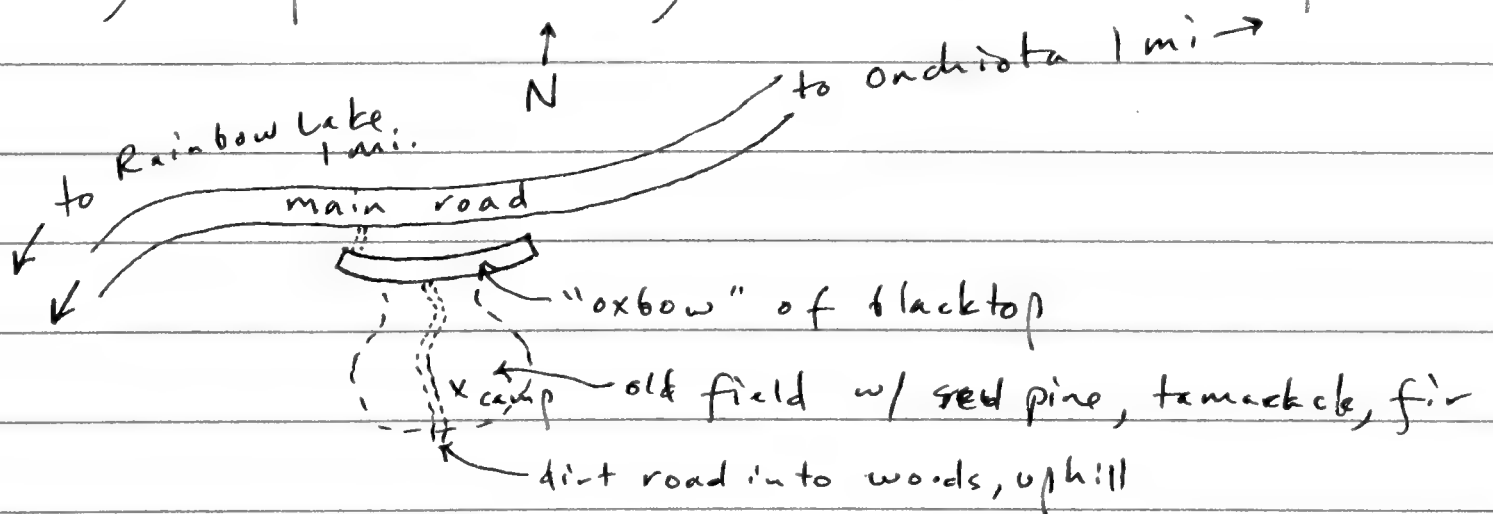 N
to Onchiota 1 mi →
to Rainbow Lake,
1 mi.
main road
"oxbow" of blacktop
x camp
old field w/ red pine, tamarack, fir
dirt road into woods, uphill